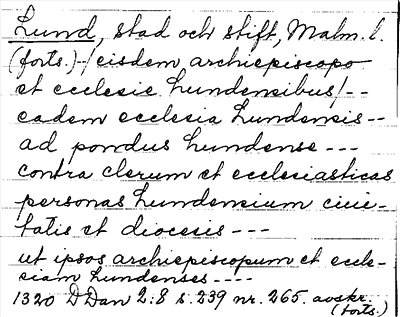 Lund, stad och stift, Malm. l.
(forts.)-/eisdem archiepiscopo
et ecclesie Lundensibus/--
eadem ecclesia Lundensis--
ad pondus Lundense ---
contra clerum et ecclesiasticas
personas Lundensium ciui-
tatis et diocesis ---
ut ipsos archiepiscopum et eccle-
siam Lundenses ----
1320 DDan 2:8 s. 239 nr. 265. avskr.
(forts.)